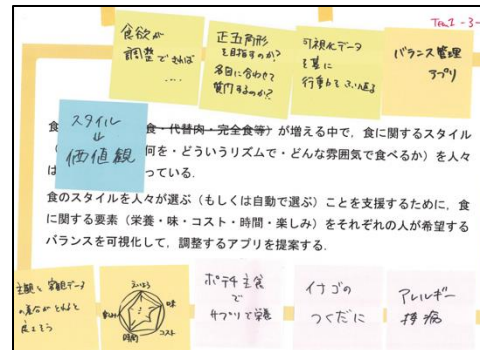 Team 2 -3-
食欲が
調整できれば
....
正五角形
を目指すのか?
各自に合わせて
質問するのか?
可視化データ
を基に
行動をふり返る
バランス管理
アプリ
スタイル
⇓
価値観
食
食・代替肉・完全食等）が増える中で，食に関するスタイル
（
何を・どういうリズムで・どんな雰囲気で食べるか）を人々
は
っている．
食のスタイルを人々が選ぶ（もしくは自動で選ぶ）ことを支援するために，食
に関する要素（栄養・味・コスト・時間・楽しみ）をそれぞれの人が希望する
バランスを可視化して，調整するアプリを提案する．
主観と客観データ
の差分がとれると
良さそう
えいよう
味
コスト
時間
楽しみ
ポテチ主食
で
サプリで栄養
イナゴの
つくだに
アレルギー
持病